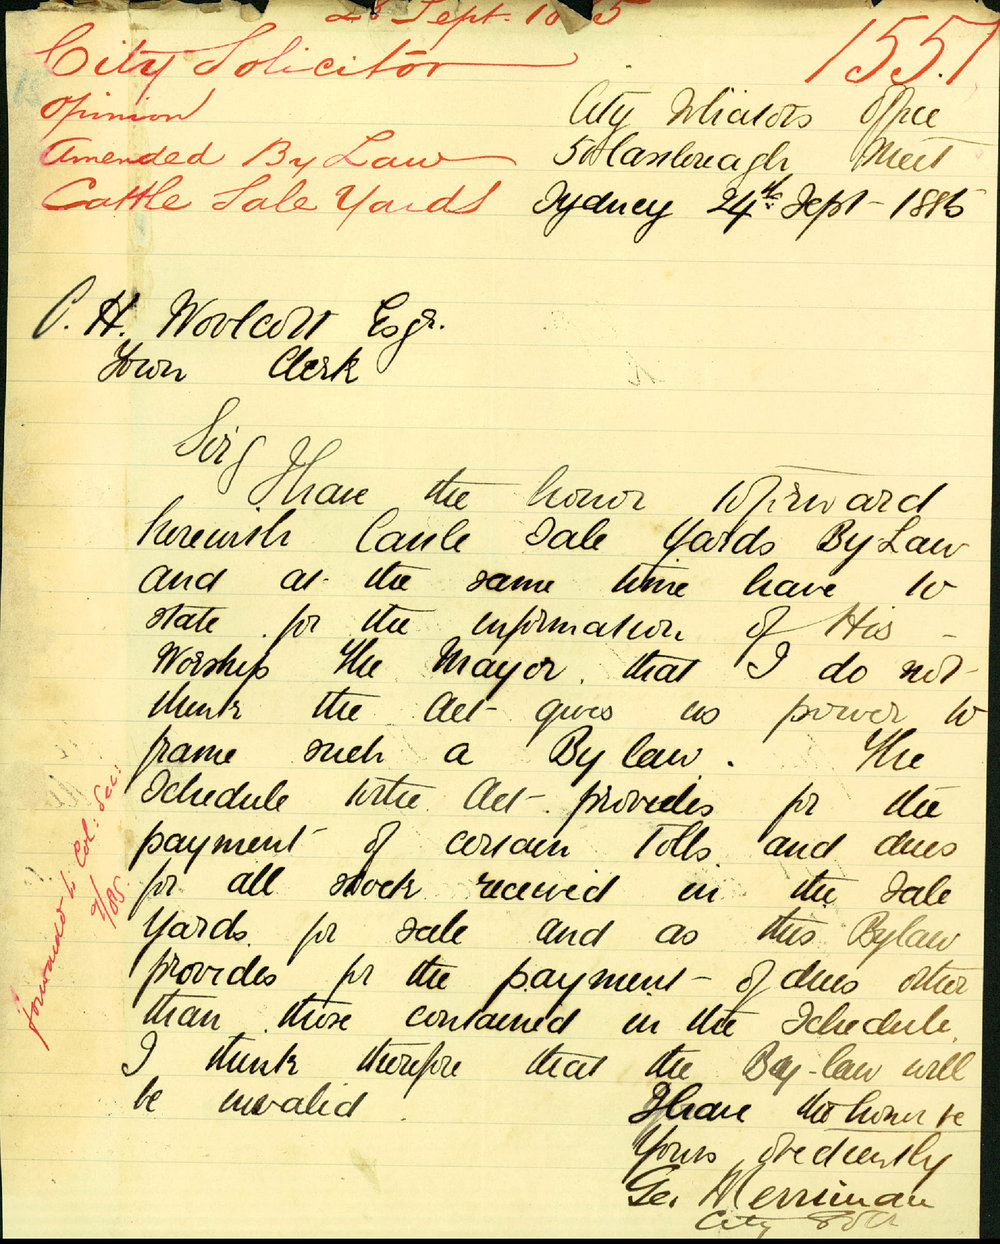 28 Sept. 1885
1557
City Solicitor
opinion
Amended By Law
Cattle Sale Yards
City Solicitors Office
Street
Sydney 24th Sept 1885
C. H. Woolcott Esqr.
Town Clerk
Sir
I have the honor to forward
herewith Cattle Sale Yards By Law
and at the same time have to
state for the information of His
Worship the Mayor that I do not
think the Act gives us power to
frame such a By law. The
Schedule to the Act provides for the
payment of certain Tolls and dues
for all stock received in the Sale
Yards for sale and as this Bylaw
provides for the payment of dues other
than those contained in the Schedule
I think therefore that the By-law will
be invalid
I have the honor to be
Yours obediently
Geo. Merriman
City Solr
forwarded to Col: Sec: